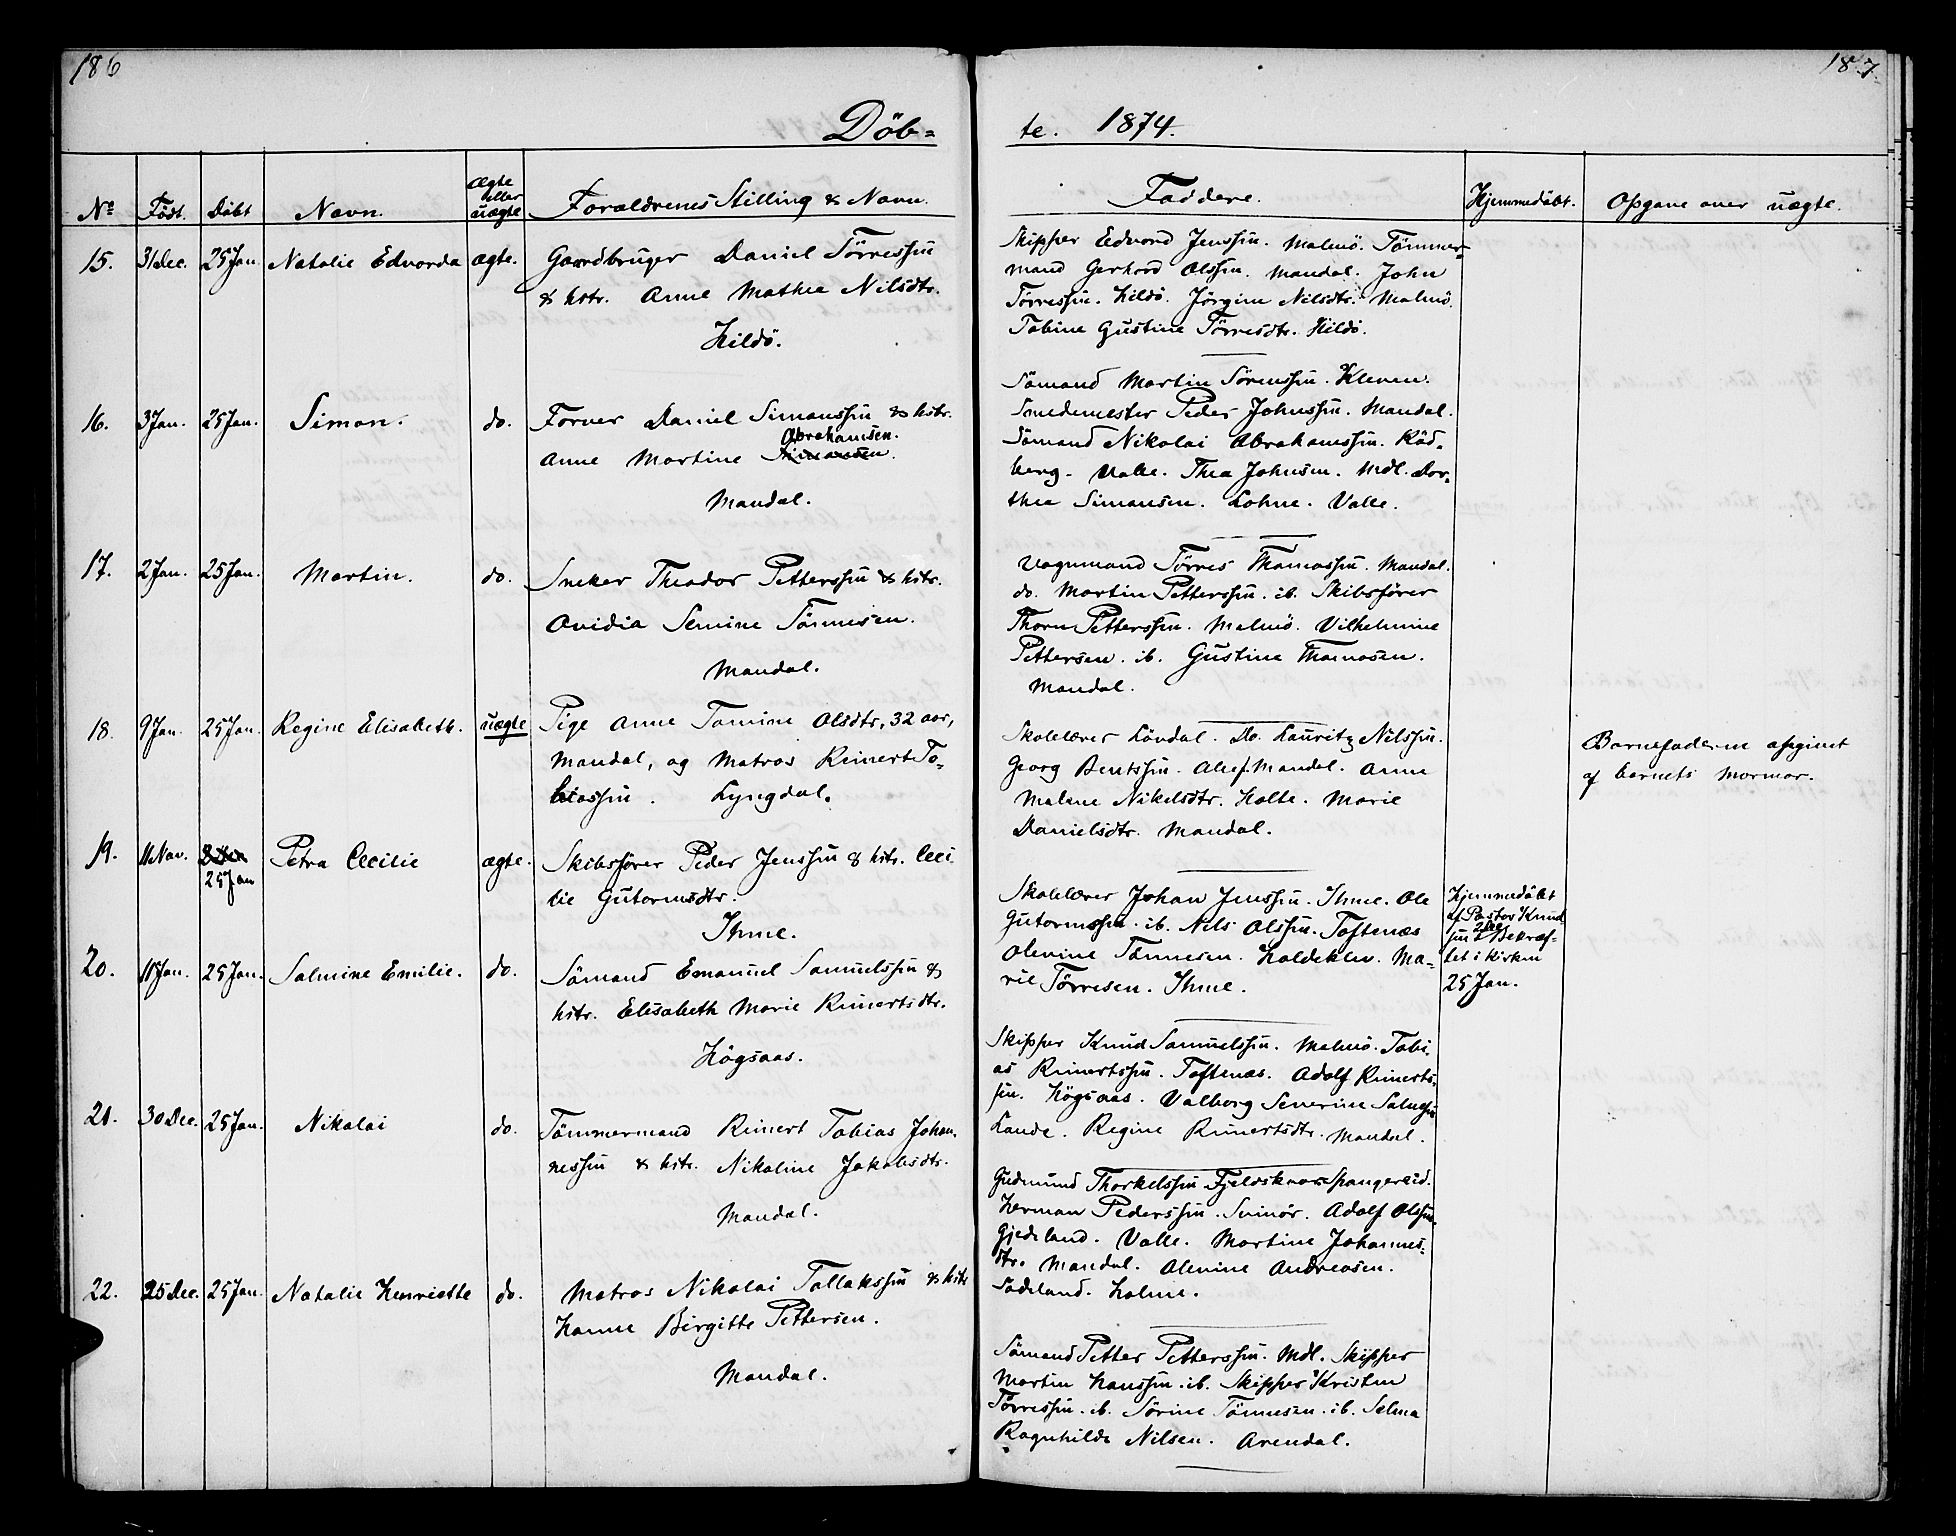 186
187
Döb-
te. 1874.
No
Födt.
Döbt
Navn.
Ægte
eller
uægte
Forældrenes Stilling & Navn.
Faddere.
Hjemmedöbt.
Opgave over uægte.
15.
31 Dec.
25 Jan.
Natalie Edvarda
ægte.
Gaardbruger Daniel Törressen
& hstr. Anne Mathea Nilsdtr.
Hildö.
Skipper Edvard Jenssen. Malmö. Tömmer-
mand Gerhard Olssen. Mandal. John
Törressen. Hildö. Jörgine Nilsdtr. Malmö.
Tobine Gustine Törresdtr. Hildö.
16.
3 Jan.
25 Jan.
Simon.
do.
Farver Daniel Simonssen & hstr.
Abrahamsen.
Anne Martine Simonsen.
Mandal.
Sömand Martin Sörenssen. Kleven.
Smedemester Peder Johnssen. Mandal.
Sömand Nikolai Abrahamssen. Röd-
berg. Valle. Thea Johnsen. Mdl. Dor-
thea Simonsen. Lohne. Valle.
17.
2 Jan.
25 Jan.
Martin.
do.
Sneker Theodor Petterssen & hstr.
Ovidia Semine Tönnesen.
Mandal.
Vognmand Törres Thomassen. Mandal.
do. Martin Petterssen. ib. Skibsförer
Thorn Petterssen. Malmö. Vilhelmine
Pettersen. ib. Gustine Thomasen.
Mandal.
18.
9 Jan.
25 Jan.
Regine Elisabeth.
uægte
Pige Anne Tomine Olsdtr, 32 aar,
Mandal, og Matros Reinert To-
biassen. Lyngdal.
Skolelærer Lövdal. Do. Lauritz Nilssen.
Georg Bentssen. Alle f. Mandal. Anne
Malene Nikelsdtr. Holte. Marie
Danielsdtr. Mandal.
Barnefaderen opgivet
af barnets mormor.
19.
11 Nov.
25 Jan
Petra Cecilie
ægte.
Skibsförer Peder Jenssen & hstr. Ceci-
lie Gutormsdtr.
Ihme.
Skolelærer Johan Jenssen. Ihme. Ole
Gutormssen. ib. Nils Olssen. Toftenæs
Olevine Tönnesen. Holdeklev. Ma-
rie Törresen. Ihme.
Hjemmedöbt
af Pastor Knud-
sen 2 Dec Bekræf-
tet i Kirken
25 Jan.
20.
11 Jan.
25 Jan.
Salmine Emilie.
do.
Sömand Emanuel Samuelssen &
hstr. Elisabeth Marie Reinertsdtr.
Högsaas.
Skipper Knud Samuelssen. Malmö. Tobi-
as Reinertssen. Toftenæs. Adolf Reinerts-
sen. Högsaas. Valborg Severine Salvesen
Lande. Regine Reinertsdtr. Mandal.
21.
30 Dec.
25 Jan.
Nikolai
do.
Tömmermand Reinert Tobias Johan-
nessen & hstr. Nikoline Jakobsdtr.
Mandal.
Gudmund Thorkelssen Fjeldskaar Spangereid.
Herman Pederssen. Svinör. Adolf Olssen.
Gjedeland. Valle. Martine Johannes-
dtr. Mandal. Olevine Andreasen.
Sodeland. Holme.
22.
25 Dec.
25 Jan.
Natalie Henriette
do.
Matros Nikolai Tallakssen & hstr
Hanne Birgitte Pettersen.
Mandal.
Sömand Petter Petterssen. Mdl. Skipper
Martin Hanssen. ib. Skipper Kristen
Törressen. ib. Sörine Tönnesen. ib. Selma
Ragnhilde Nilsen. Arendal.